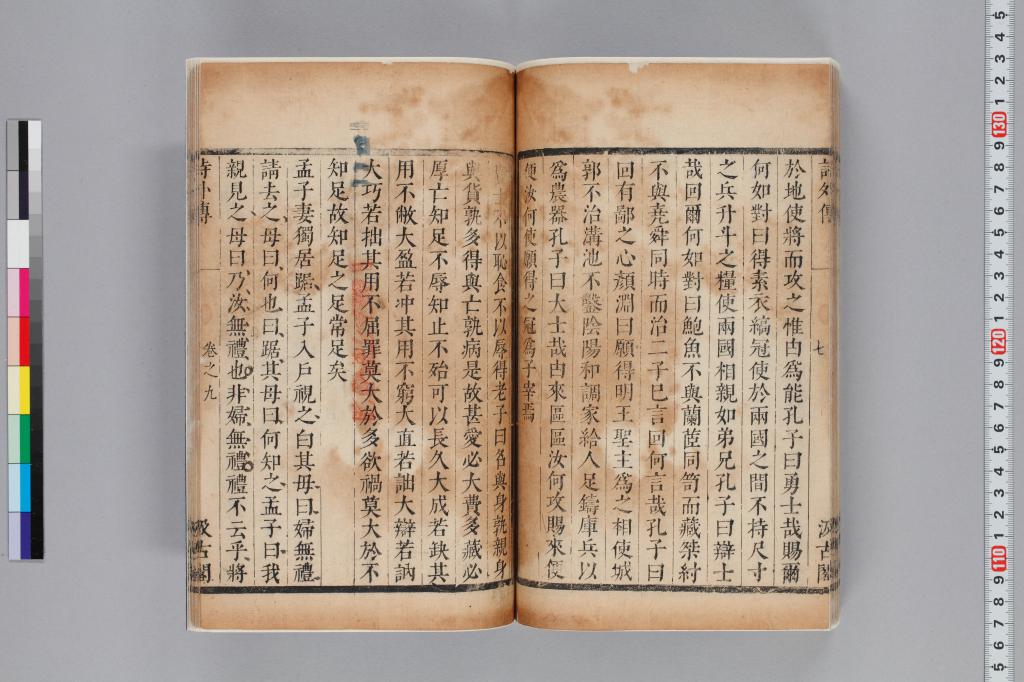 詩外傳
七
汲古閣
於地使將而攻之惟由爲能孔子曰勇士哉賜爾
何如對曰得素衣縞冠使於兩國之間不持尺寸
之兵升斗之糧使兩國相親如弟兄孔子曰辯士
哉回爾何如對曰鮑魚不與蘭茞同笥而藏桀紂
不與堯舜同時而治二子已言回何言哉孔子曰
回有鄙之心顏淵曰願得明王聖主爲之相使城
郭不治溝池不鑿陰陽和調家給人足鑄庫兵以
爲農器孔子曰大士哉由來區區汝何攻賜來便
便汝何使願得之冠爲子宰焉
士不以恥食不以辱得老子曰名與身孰親身
與貨孰多得與亡孰病是故甚愛必大費多藏必
厚亡知足不辱知止不殆可以長久大成若缺其
用不敝大盈若冲其用不窮大直若詘大辯若訥
大巧若拙其用不屈罪莫大於多欲禍莫大於不
知足故知足之足常足矣
孟子妻獨居踞孟子入戶視之白其母曰婦無禮
請去之母曰何也曰踞其母曰何知之孟子曰我
親見之母曰乃汝無禮也非婦無禮禮不云乎將
詩外傳
卷之九
汲古閣